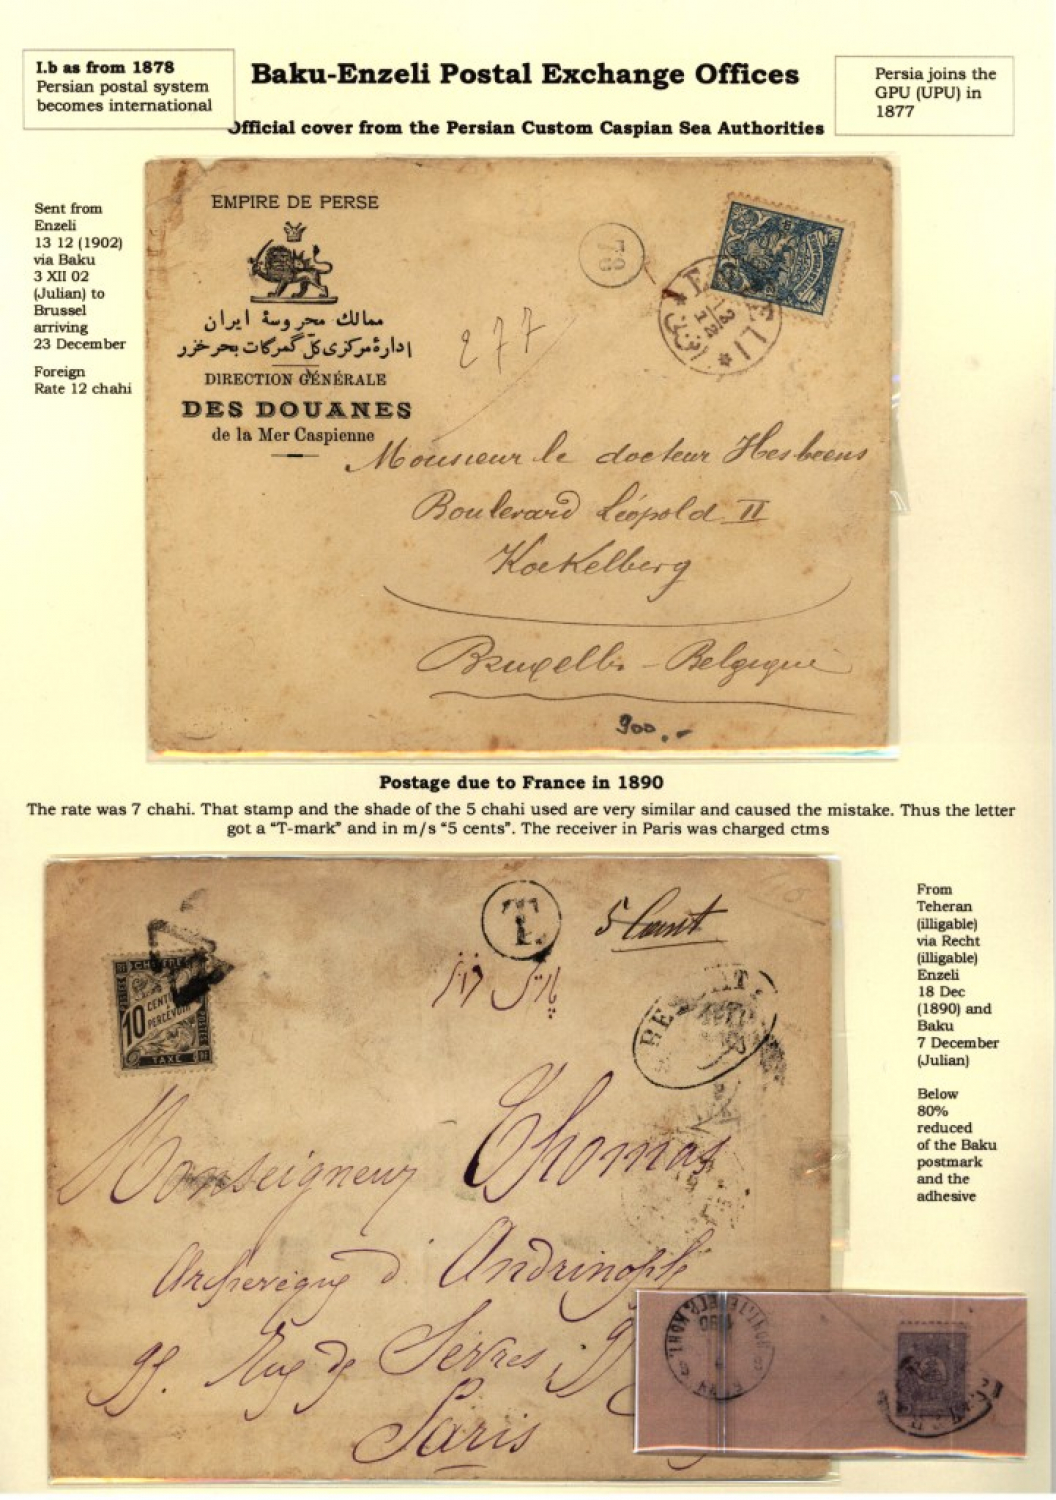 I.b as from 1878
Persian postal system
becomes international
Baku-Enzeli Postal Exchange Offices
Persia joins the
GPU (UPU) in
1877
Official cover from the Persian Custom Caspian Sea Authorities
Sent from
Enzeli
13 12 (1902)
via Baku
3 XII 02
(Julian) to
Brussel
arriving
23 December
Foreign
Rate 12 chahi
EMPIRE DE PERSE
ممالك محروسهٔ ایران
ادارهٔ مرکزی کلّ گمرگات بحر خزر
DIRECTION GÉNÉRALE
DES DOUANES
de la Mer Caspienne
78
277
Monsieur le docteur Hesbeens
Boulevard Léopold II
Koekelberg
Bruxelles - Belgique
900.-
Postage due to France in 1890
The rate was 7 chahi. That stamp and the shade of the 5 chahi used are very similar and caused the mistake. Thus the letter
got a “T-mark” and in m/s “5 cents”. The receiver in Paris was charged ctms
T
5 Cent
CHIFFRE
10
CENTIMES
PERCEVOIR
TAXE
Monseigneur Thomas
Archevêque d'Andrinople
95. Rue de Sèvres
Paris
From
Teheran
(illigable)
via Recht
(illigable)
Enzeli
18 Dec
(1890) and
Baku
7 December
(Julian)
Below
80%
reduced
of the Baku
postmark
and the
adhesive
1890